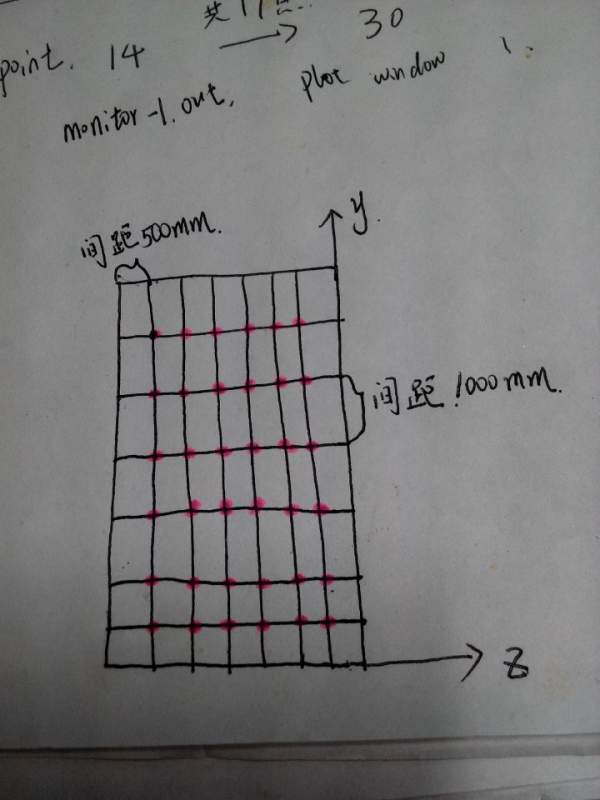 共17点..
point. 14 → 30
monitor-1.out. plot window 1.
y.
间距500mm.
间距1000mm.
z